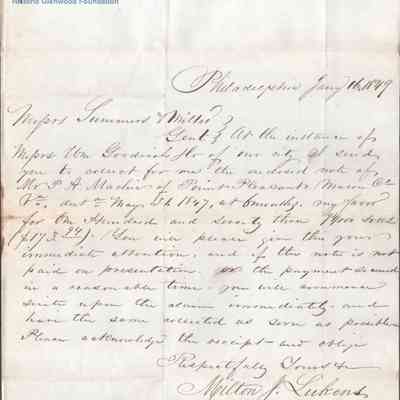 Historic Glenwood Foundation
Philadelphia Jany 16 1849
Messrs Summers & Miller
Gent. At the instance of
Messrs Wm Goodrich of our city I send
you to collect for me the enclosed note of
Mr P. A. of Point Pleasant Mason Co
Va. date May 1847, at 6 months, my favor
for One Hundred and seventy three dolls
($173 ). You will please give this your
immediate attention, and if the note is not
paid on presentation or the payment secured
in a reasonable time you will commence
suit upon the same immediately and
have the same collected as soon as possible
Please acknowledge the receipt and oblige
Respectfully Yours &c
Milton J. Lukens